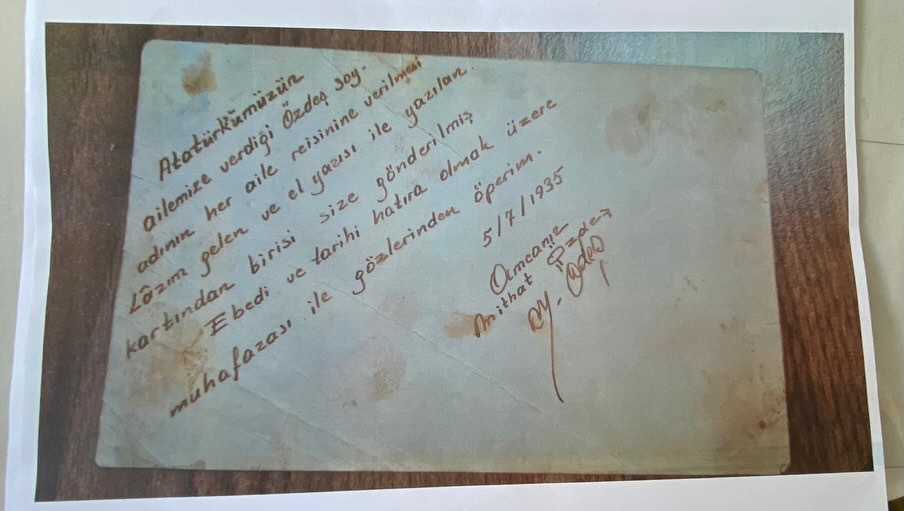 Atatürkümüzün
ailemize verdiği Özdeş soy-
adının her aile reisinine verilmesi
Lâzım gelen ve el yazısı ile yazılan
kartından birisi size gönderilmiş
Ebedi ve tarihi hatıra olmak üzere
muhafazası ile gözlerinden öperim.
5/7/1935
Amcanız
Mithat Özdeş